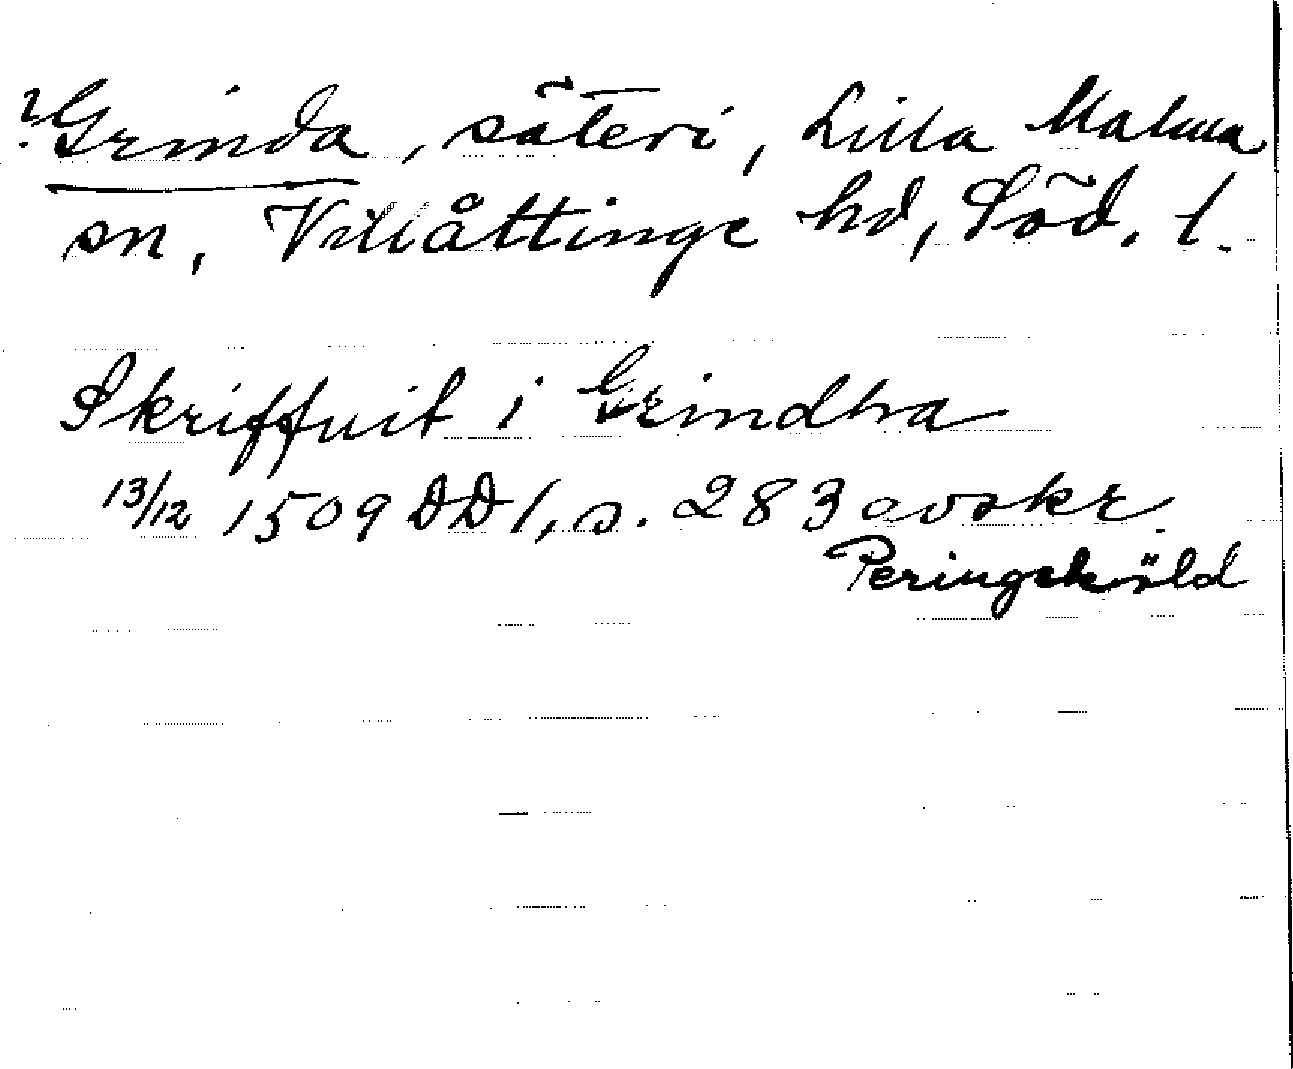 ?Grinda, säteri, Lilla Malma
sn, Villåttinge hd, Söd. l.
Skriffuit i Grindha
13/12 1509 DD 1, s. 283 avskr.
Peringskiöld